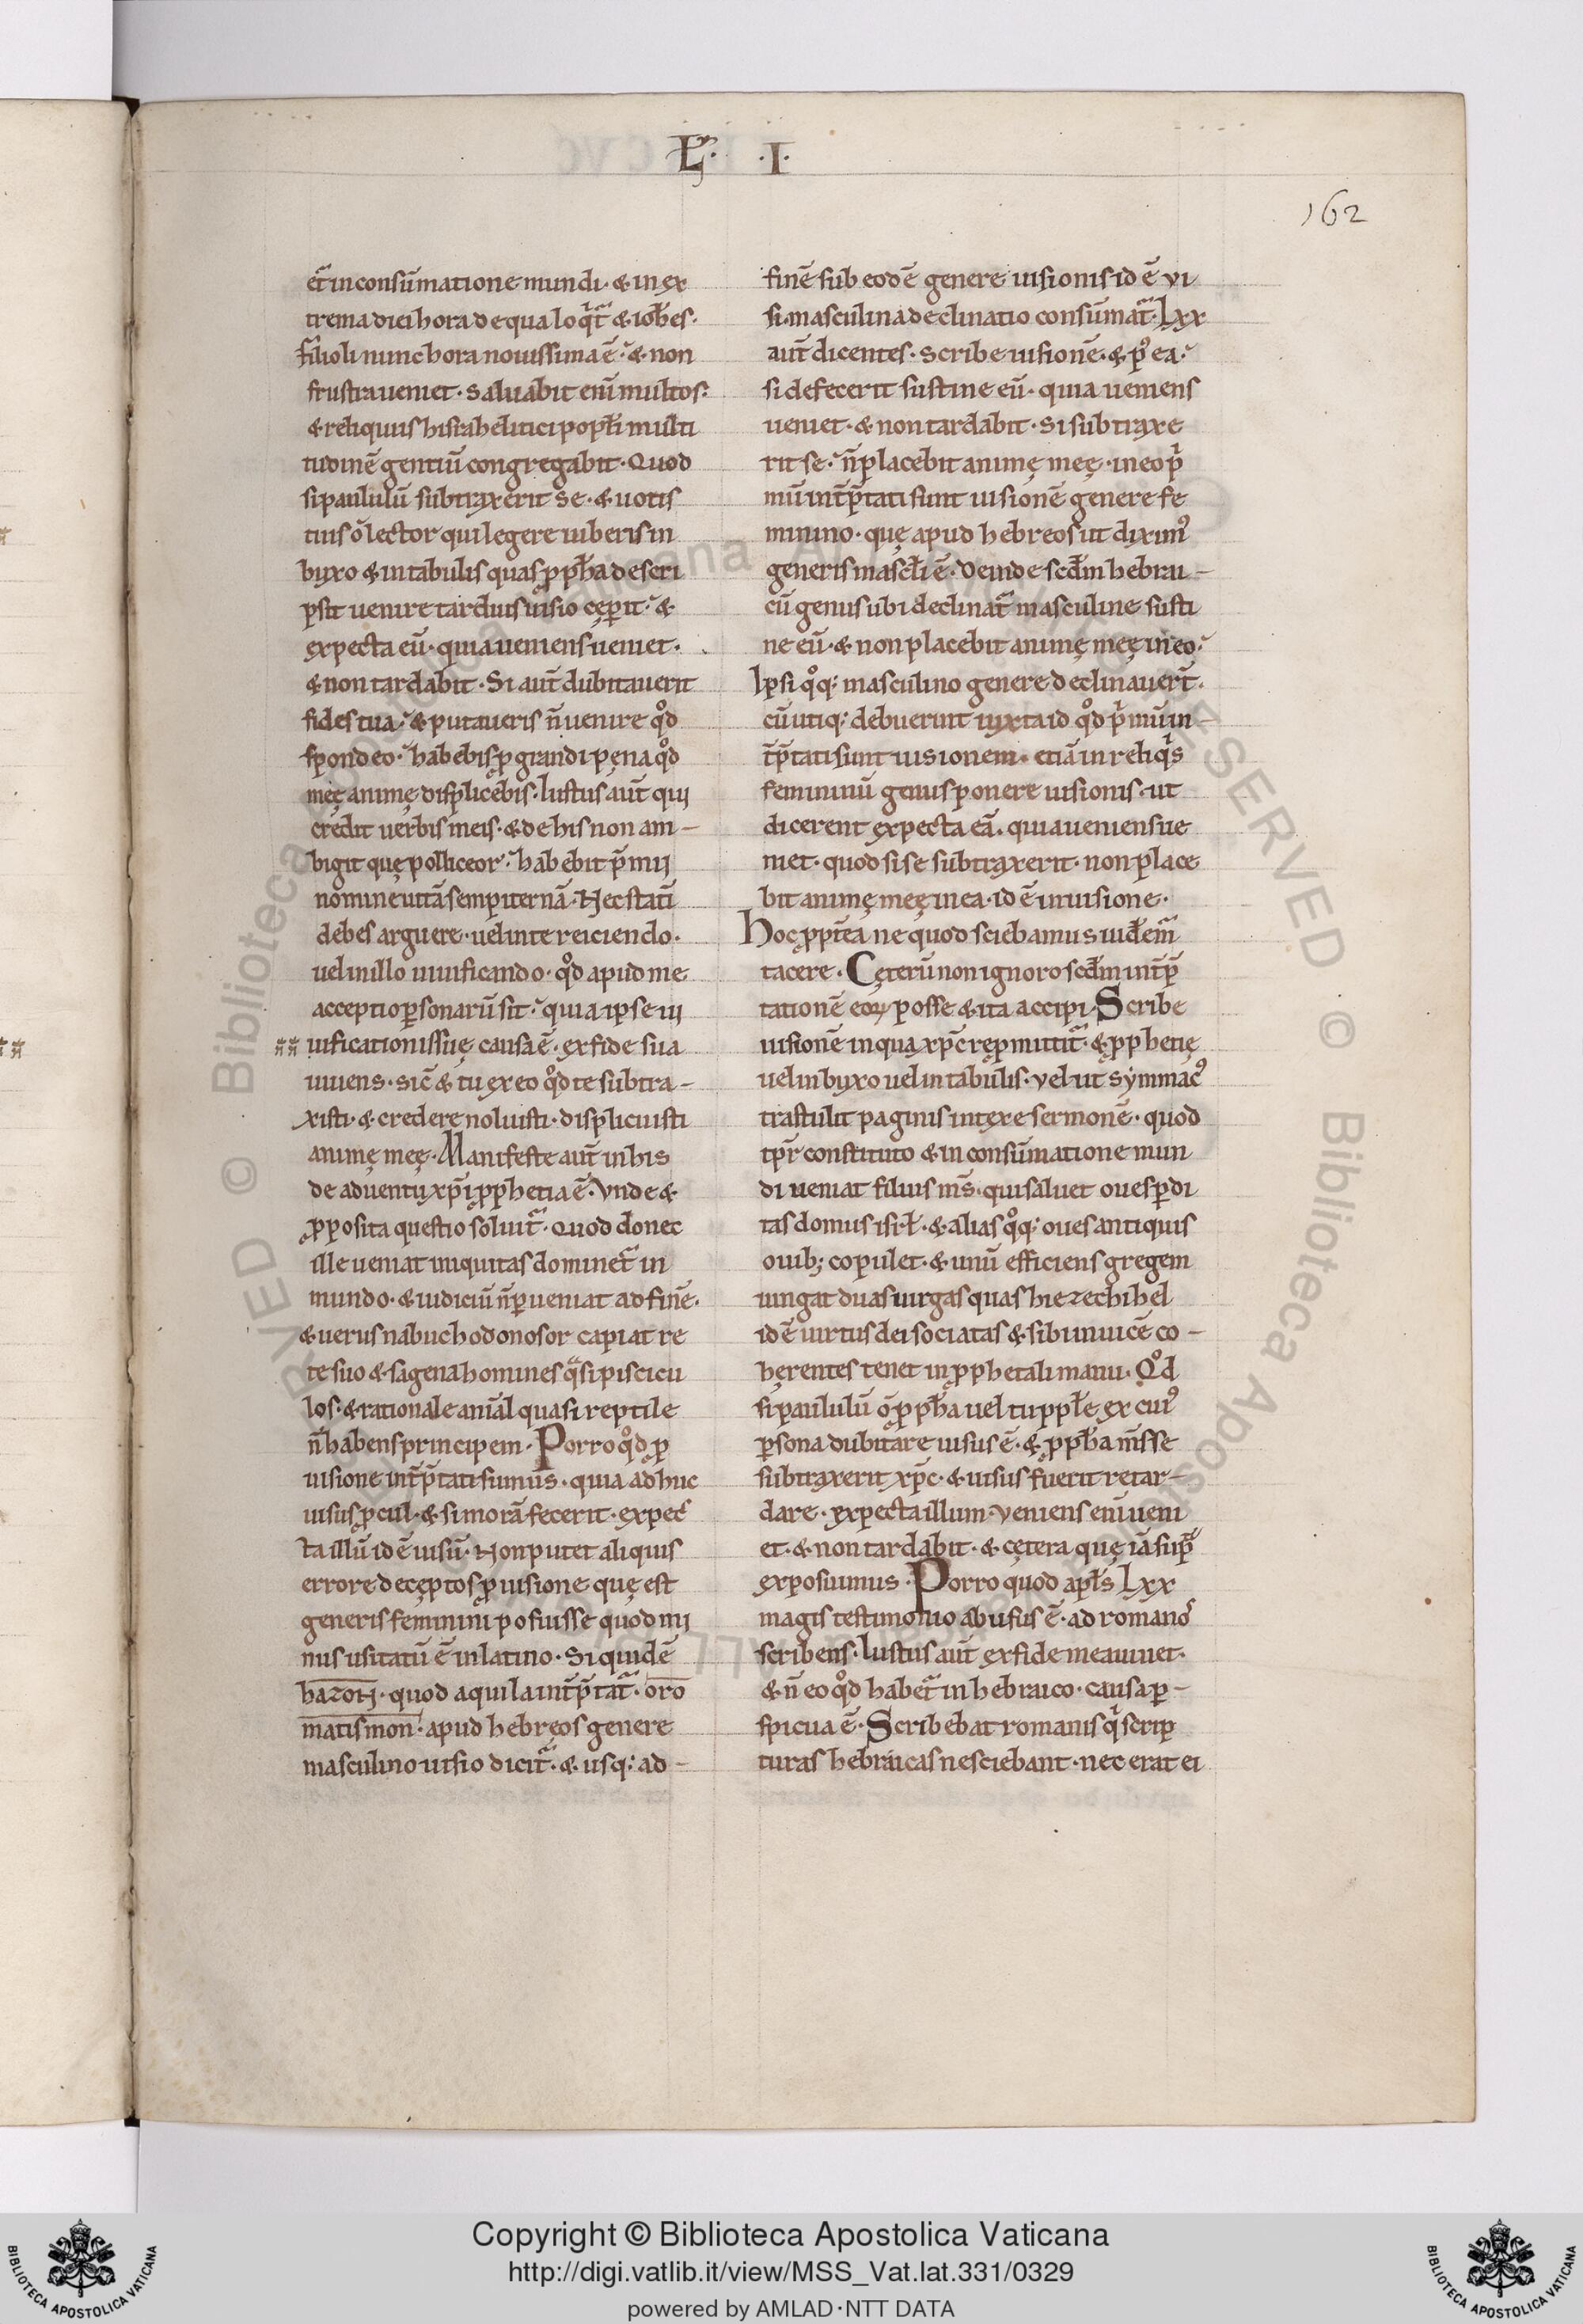 Lⁱ. .I.
162
et̄ inconsūmatione mundi· & in ex
trema diei hora de qua loqͥt̄ & ioħes·
filioli nunc hora nouissima ē· & non
frustra ueniet· saluabit eni̅ multos·
& reliquiis hisrahelitici popłi multi
tudinē gentiū congregabit· Quod
si paululū subtraxerit se· & uotis
tuis o᷑ lector qui legere iuberis in
buxo & in tabulis quas ꝓpħa descri
psit uenire tardius uisio cęperit· &
expecta eū· quia ueniens ueniet·
& non tardabit· Si aut̄ dubitauerit
fides tua· & putaueris n̄ uenire qͦd
spondeo· habebis ꝓ grandi pęna qͦd
meę animę displicebis· Iustus aut̄ qui
credit uerbis meis· & de his non am-
bigit quę polliceor· habebit p̄mii
nomine uitā sempiternā· Nec statī
debes arguere· uel in te reiciendo·
uel in illo uiuificando· qͦd apud me
acceptio ꝑsonarū sit· quia ipse ui
uificationis suę causa ē· ex fide sua
uiuens· sic̄ & tu ex eo qͦd te subtra-
xisti· & credere noluisti· displicuisti
animę meę· Manifeste aut̄ in his
de aduentu xp̄i ꝓphetia ē· Vnde &
ꝓposita questio soluit᷑· Quod donec
ille ueniat iniquitas dominet᷑ in
mundo· & iudiciū n̄ ꝑueniat ad finē·
& uerus nabuchodonosor capiat re
te suo & sagena homines qͣsi piscicu
los· & rationale anim̄al quasi reptile
n̄ habens principem· Porro qͦd ꝓ
uisione int̄p̄tati sumus· quia adhuc
uisus ꝓcul· & si morā fecerit· expec
ta illū id ē uisū· Non putet aliquis
errore deceptos ꝓ uisione quę est
generis feminini posuisse quod mi
nus usitatū ē in latino· Siquidē
hazon· quod aquila int̄p̄tat᷑· oro
matismon· apud hebręos genere
masculino uisio dicit᷑· & usq; ad-
finē sub eodē genere uisionis id ē vi
si· masculina declinatio consūmat᷑· Lxx
aut̄ dicentes· scribe uisionē· & pꝰ ea·
si defecerit sustine eū· quia ueniens
ueniet· & non tardabit· si subtraxe
rit se· n̄ placebit animę meę· in eo pͥ
mū int̄p̄tati sunt uisionē genere fe
minino· quę apud hebreos ut diximꝰ
generis mascłi ē· Deinde scđm hebrai-
cū genus ubi declinat᷑ masculine susti
ne eū· & non placebit animę meę in eo·
Ipsi qͦq; masculino genere declinauer̄t·
cū utiq; debuerint iuxta id qͦd pͥmū in-
t̄p̄tati sunt uisionem· etiā in reliqͥs
femininū genus ponere uisionis· ut
dicerent expecta eā· quia ueniens ue
niet· quod si se subtraxerit· non place
bit animę meę in ea· id ē in uisione·
Hoc ꝓpt̄ea ne quod sciebamus uiđem᷑
tacere· Cęterū non ignoro scđm int̄p̄
tationē eoꝝ posse & ita accipi· Scribe
uisionē in qua xp̄c repmittit᷑· & ꝓphetię
uel in buxo uel in tabulis· vel ut symmacꝰ
trastulit paginis intexe sermonē· quod
tp̄r constituto & in consūmatione mun
di ueniat filius m̄s· qui saluet oues ꝑdi
tas domus isr̄ł· & alias qͦq; oues antiquis
ouib; copulet· & unū efficiens gregem
iungat duas uirgas quas hiezechihel
id ē uirtus dei sociatas & sibi inuicē co-
herentes tenet in ꝓphetali manu· Qͦd
si paululū o᷑ ꝓpħa uel tu ppłe ex cuiꝰ
ꝑsona dubitare uisus ē· & ꝓpħa m̄ se
subtraxerit xp̄c· & uisus fuerit retar-
dare· expecta illum· Veniens eni̅ ueni
et· & non tardabit· & cętera quę iā sup᷑
exposuimus· Porro quod apłs Lxx
magis testimonio abusus ē· ad romanos
scribens· Iustus aut̄ ex fide mea uiuet·
& n̄ eo qͦd habet᷑ in hebraico· causa ꝑ-
spicua ē· Scribebat romanis qͥ scrip
turas hebraicas nesciebant· nec erat ei
© Biblioteca Apostolica Vaticana ALL RIGHTS RESERVED © Biblioteca Apostolica Vaticana ALL RIGHTS RESERVED
BIBLIOTECA APOSTOLICA VATICANA
Copyright © Biblioteca Apostolica Vaticana
http://digi.vatlib.it/view/MSS_Vat.lat.331/0329
powered by AMLAD·NTT DATA
BIBLIOTECA APOSTOLICA VATICANA